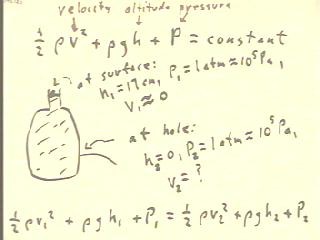 velocity altitude pressure
½ ρV² + ρgh + P = constant
at surface:
h₁=17cm, P₁=1atm≈10⁵Pa,
V₁≈0
at hole:
h₂=0, P₂=1atm≈10⁵Pa,
V₂=?
½ρv₁² + ρgh₁ + P₁ = ½ρv₂² + ρgh₂ + P₂